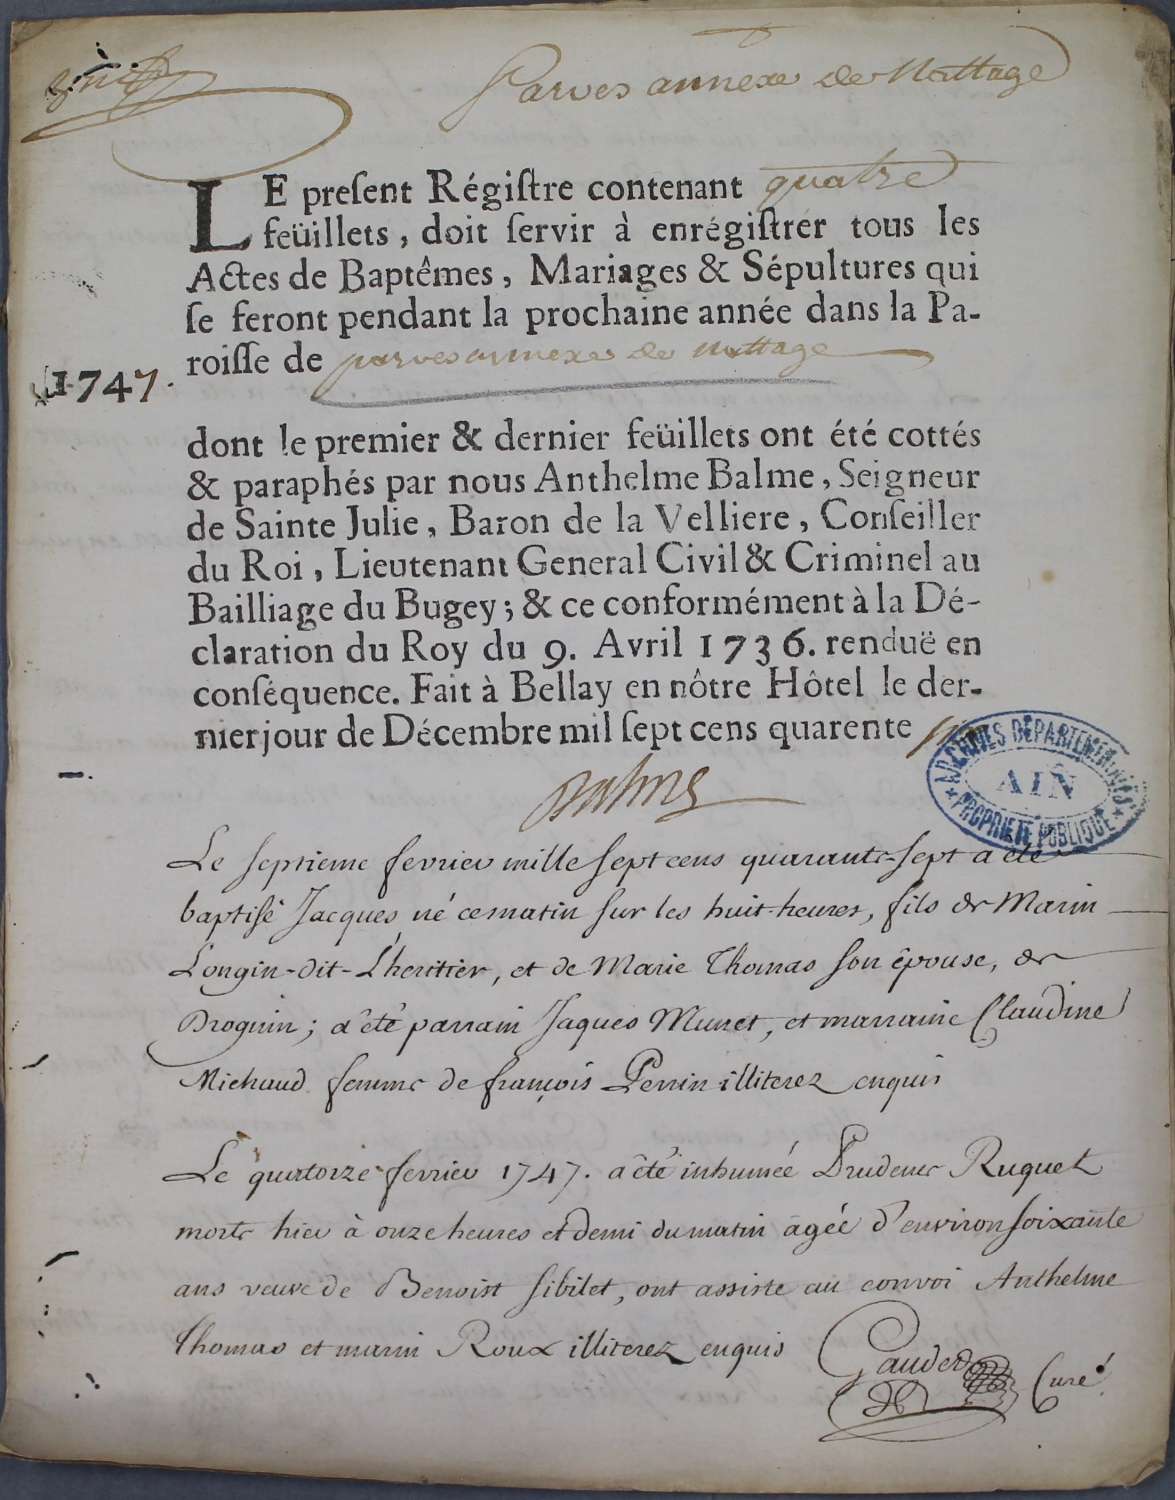 Parves annexe de Nattage
LE preſent Régiſtre contenant quatre
feüillets, doit ſervir à enrégiſtrer tous les
Actes de Baptêmes, Mariages & Sépultures qui
ſe feront pendant la prochaine année dans la Pa-
roiſſe de parves annexe de Nattage
1747.
dont le premier & dernier feüillets ont été cottés
& paraphés par nous Anthelme Balme, Seigneur
de Sainte Julie, Baron de la Velliere, Conſeiller
du Roi, Lieutenant General Civil & Criminel au
Bailliage du Bugey; & ce conformément à la Dé-
claration du Roy du 9. Avril 1736. renduë en
conſéquence. Fait à Bellay en nôtre Hôtel le der-
nier jour de Décembre mil ſept cens quarente
ARCHIVES DÉPARTEMENTALES
AIN
PROPRIÉTÉ PUBLIQUE
Balme
Le septieme fevrier mille sept cens quarante-sept a été
baptisé Jacques, né ce matin sur les huit heures, fils de Marin
Longin-dit-L'heritier, et de Marie Thomas son épouse, de
Drognin; a été parrain Jaques Munet, et marraine Claudine
Michaud femme de françois Perrin illiterez enquis
Le quatorze fevrier 1747. a été inhumée Prudence Ruquet
morte hier à onze heures et demi du matin agée d'environ soixante
ans veuve de Benoist Sibilet, ont assisté au convoi Anthelme
Thomas et marin Roux illiterez enquis
Curé